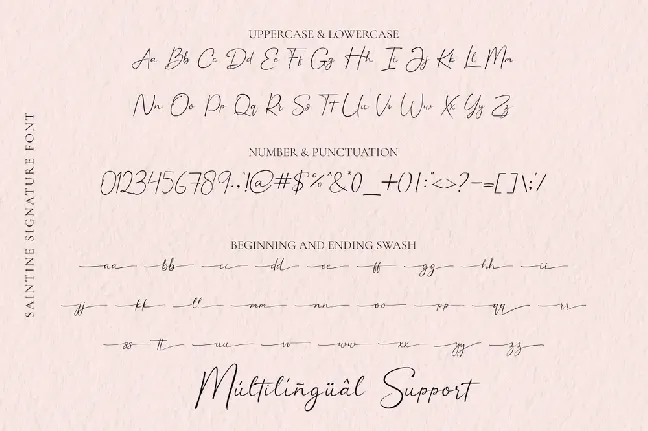 SAINTINE SIGNATURE FONT
UPPERCASE & LOWERCASE
Aa Bb Cc Dd Ee Ff Gg Hh Ii Jj Kk Ll Mm
Nn Oo Pp Qq Rr Ss Tt Uu Vv Ww Xx Yy Zz
NUMBER & PUNCTUATION
0123456789.,!@#$%^&*()_+{}|:"<>?-=[]\;'/
BEGINNING AND ENDING SWASH
aa bb cc dd ee ff gg hh ii
jj kk ll mm nn oo pp qq rr
ss tt uu vv ww xx yy zz
Múltílíñgüâl Support